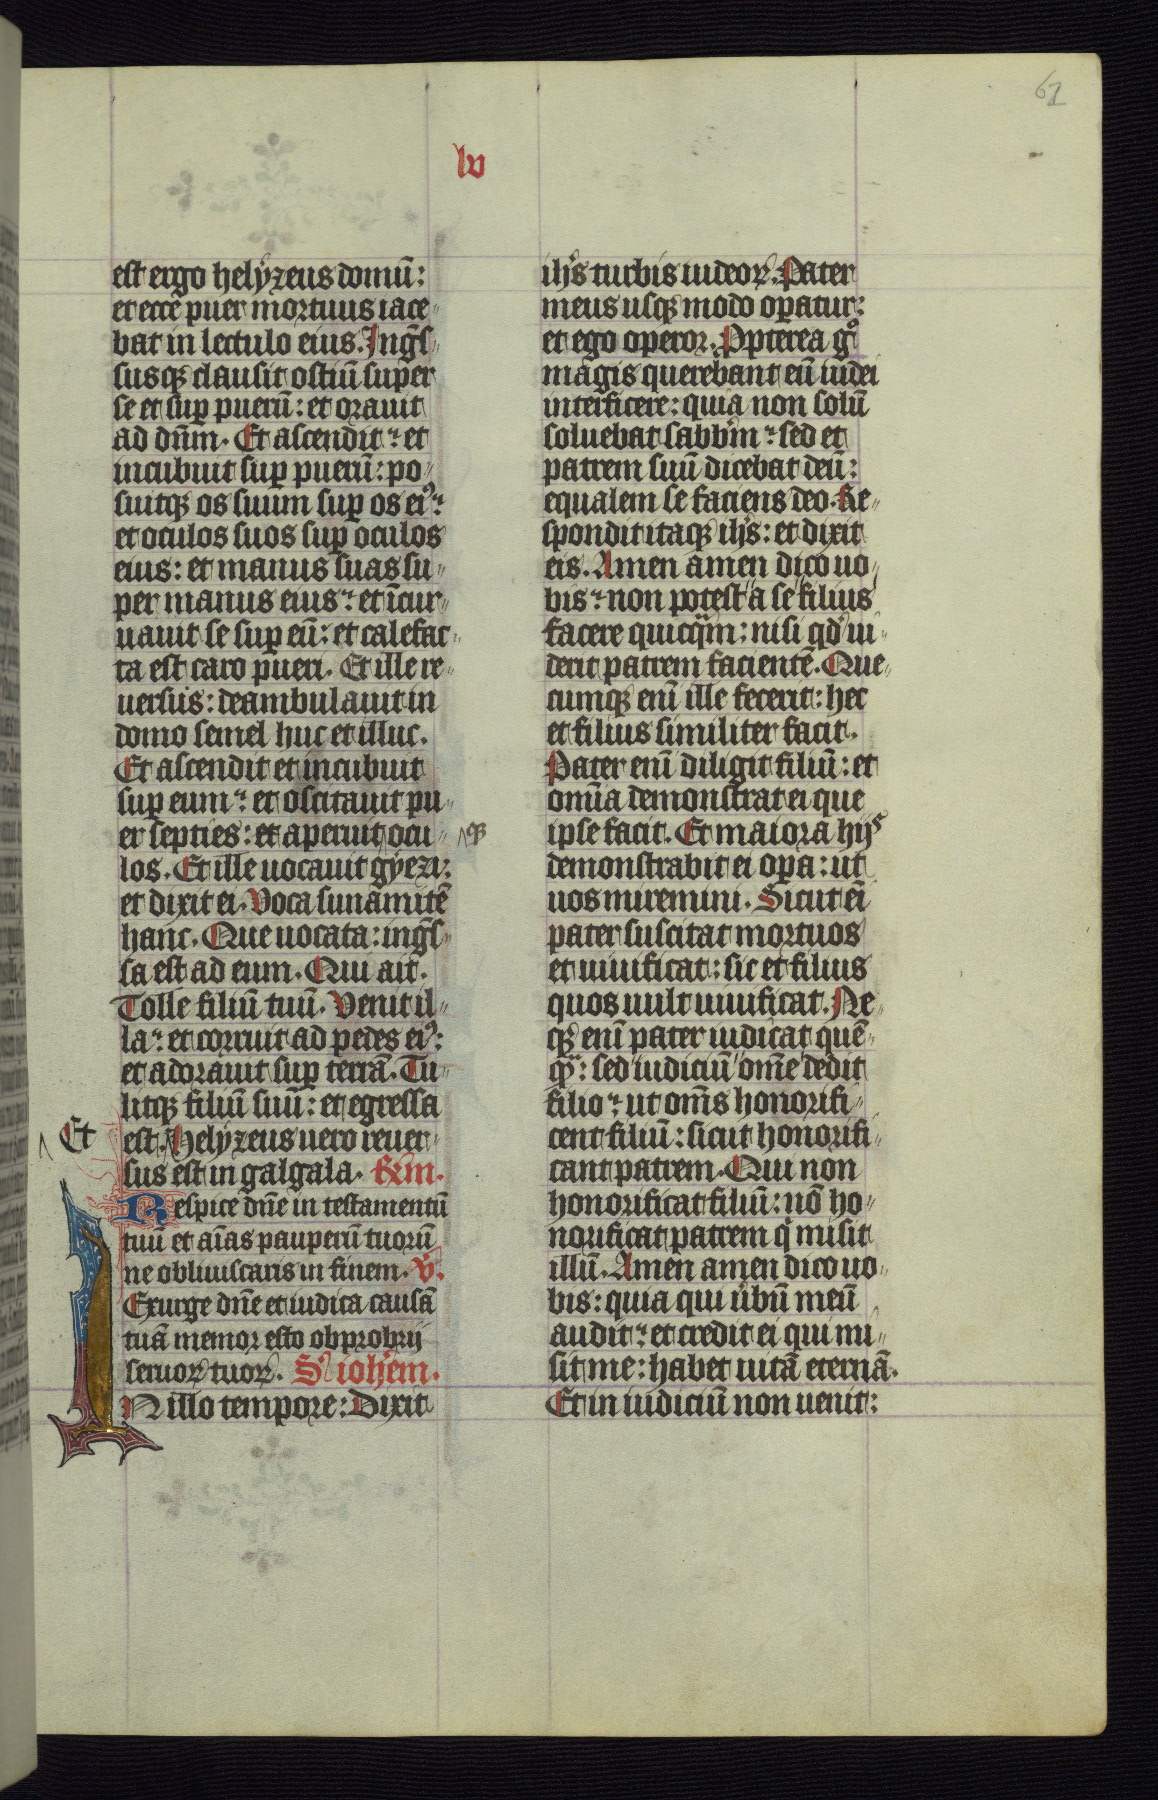 61
lv
est ergo helÿzeus domū:
et ecce puer mortuus iace
bat in lectulo eius. Ingͣs
susqꝫ clausit ostiū super
se et suꝑ puerū: et orauit
ad dn̄m. Et ascendit: et
incubuit suꝑ puerū: po
suitqꝫ os suum suꝑ os eiꝰ:
et oculos suos suꝑ oculos
eius: et manus suas su
per manus eius: et īcur
uauit se suꝑ eū: et calefac
ta est caro pueri. Et ille re
uersus: deambulauit in
domo semel huc et illuc.
Et ascendit et incubuit
suꝑ eum: et oscitauit pu
er septies: et aperuit ocu
qꝫ
los. Et ille uocauit gÿezi:
et dixit ei. Voca sunamitē
hanc. Que uocata: ingͣs
sa est ad eum. Qui ait.
Tolle filiū tuū. Venit il
la: et corruit ad pedes eiꝰ:
et adorauit suꝑ terrā. Tu
litqꝫ filiū suū: et egressa
est. Helÿzeus uero reuer
Et
sus est in galgala.
Respice dn̄e in testamentū
tuū et aīas pauperū tuorū
ne obliuiscaris in finem. V̄.
Exurge dn̄e et iudica causā
tuā memor esto obprobrij
seruoꝝ tuoꝝ. S. ioh̄em.
IN illo tempore: Dixit
ih̄s turbis iudeoꝝ. Pater
meus usqꝫ modo oꝑatur:
et ego operor. Ppterea gͦ
magis querebant eū iudei
interficere: quia non solū
soluebat sabbm̄: sed et
patrem suū dicebat deū:
equalem se faciens deo. Re
spondit itaqꝫ ih̄s: et dixit
eis. Amen amen dico uo
bis: non potest a se filius
facere quicqͣm: nisi qd̄ ui
derit patrem facientē. Que
cumqꝫ enī ille fecerit: hec
et filius similiter facit.
Pater enī diligit filiū: et
omīa demonstrat ei que
ipse facit. Et maiora hijs
demonstrabit ei oꝑa: ut
uos miremini. Sicut eī
pater suscitat mortuos
et uiuificat: sic et filius
quos uult uiuificat. Ne
qꝫ enī pater iudicat quē
qͣ: sed iudiciū om̄e dedit
filio: ut om̄s honorifi
cent filiū: sicut honorifi
cant patrem. Qui non
honorificat filiū: nō ho
norificat patrem qͥ misit
illū. Amen amen dico uo
bis: quia qui ūbū meū
audit: et credit ei qui mi
sit me: habet uitā eternā.
Et in iudiciū non uenit: